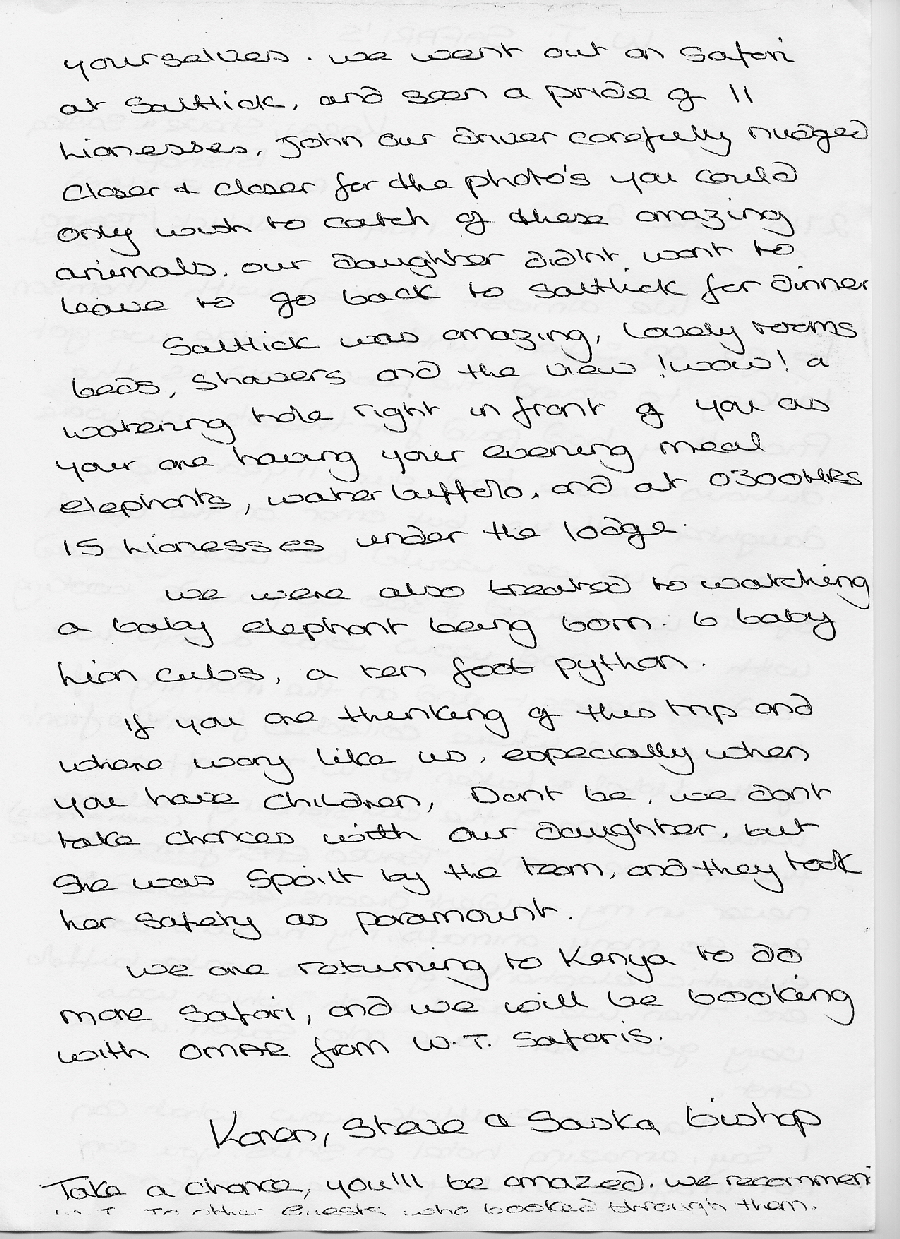 yourselves. we went out on Safari
at Saltlick, and seen a pride of 11
Lionesses, John our driver carefully nudged
closer + closer for the photo's you could
only wish to catch of these amazing
animals. our daughter didnt want to
leave to go back to Saltlick for dinner
Saltlick was amazing, lovely rooms
beds, showers and the view !wow! a
watering hole right in front of you as
your are having your evening meal
elephants, water buffolo, and at 0300HRS
15 Lionesses under the lodge.
we were also treated to watching
a baby elephant being born. 6 baby
Lion cubs, a ten foot python.
If you are thinking of this trip and
where wary like us, especially when
you have children, Dont be, we dont
take chances with our daughter, but
She was Spoilt by the team, and they took
her safety as paramount.
we are returning to Kenya to do
more Safari, and we will be booking
with OMAR from W.T. Safaris.
Karen, Steve a Saska bishop
Take a chance, you'll be amazed. we recommen
W.T. To other Guests who booked through them.